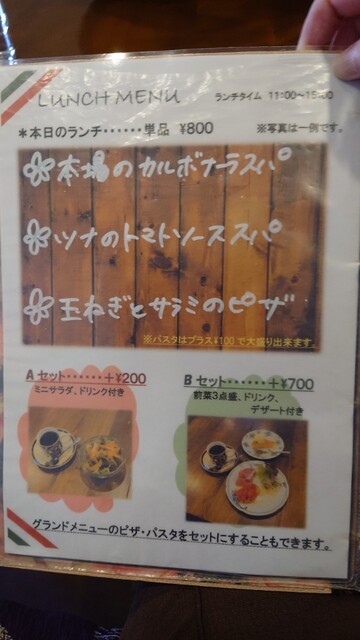 LUNCH MENU
ランチタイム 11:00～15:00
＊本日のランチ・・・・・・単品 ¥800
※写真は一例です。
本場のカルボナーラスパ
ツナのトマトソーススパ
玉ねぎとサラミのピザ
※パスタはプラス¥100で大盛り出来ます。
Aセット・・・・・・＋¥200
ミニサラダ、ドリンク付き
Bセット・・・・・・＋¥700
前菜3点盛、ドリンク、
デザート付き
グランドメニューのピザ・パスタをセットにすることもできます。